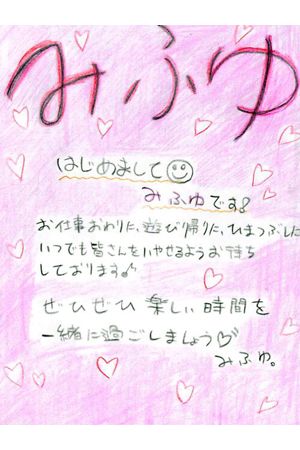 みふゆ
はじめまして☺
みふゆです♪
お仕事おわりに、遊び帰りに、ひまつぶしに
いつでも皆さんをいやせるようお待ち
しております♪
ぜひぜひ 楽しい時間を
一緒に過ごしましょう♡
みふゆ。